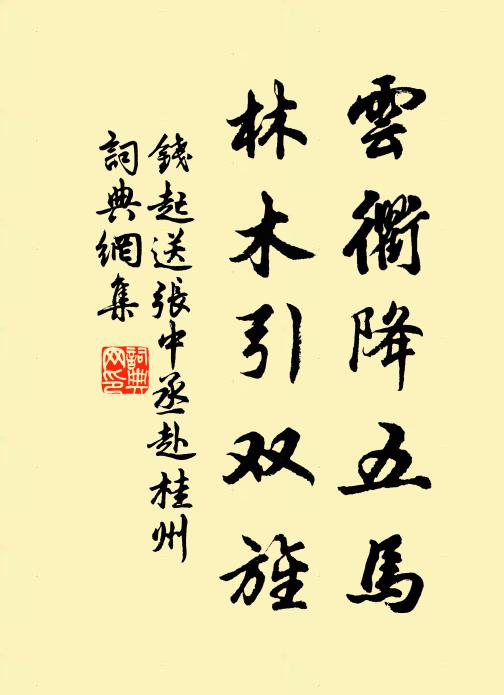 雲衢降五馬
林木引双旌
錢起送張中丞赴桂州
詞典網集
詞典网印